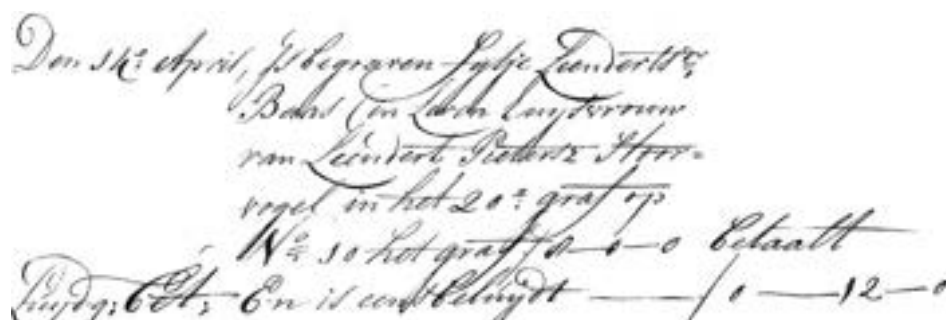 Den 14e April, Is begraven Leendertsdr
Baas in Leven huysvrouw
van Leendert Pietersz Stoor=
vogel in het 20e graf op
No 10 het graf f 8-0-0 betaalt
En is eens beluydt — f 0—12—0